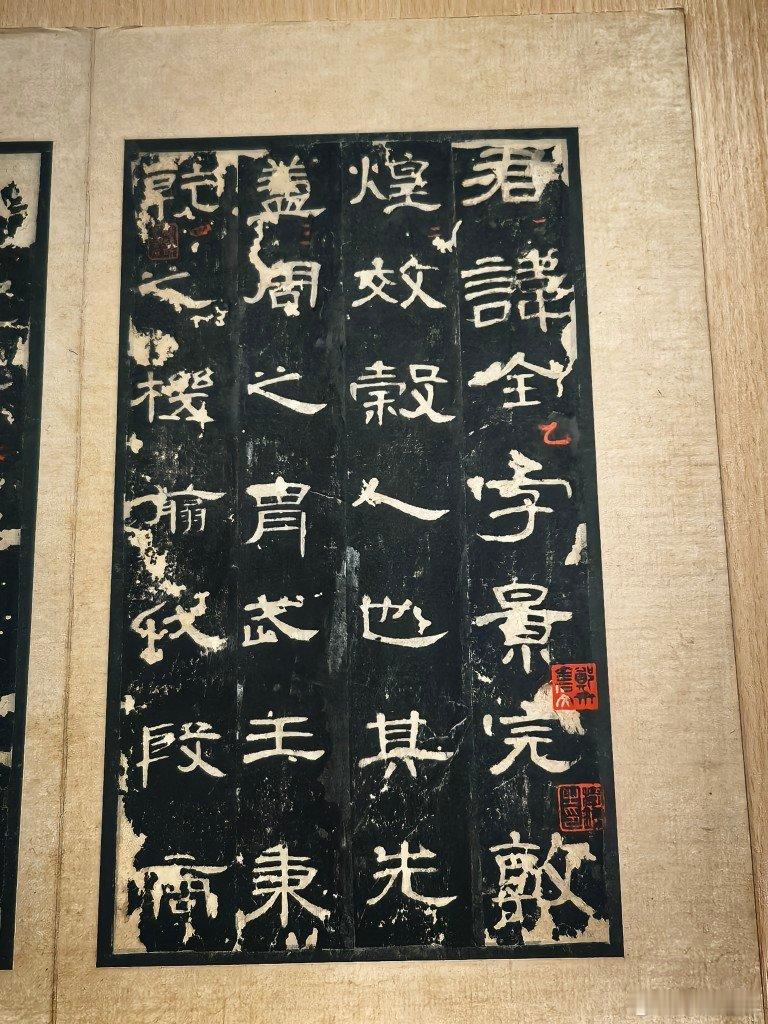 君諱全字景完敦
煌效穀人也其先
蓋周之胄武王秉
乾之機翦伐殷商
乙
二
三
四